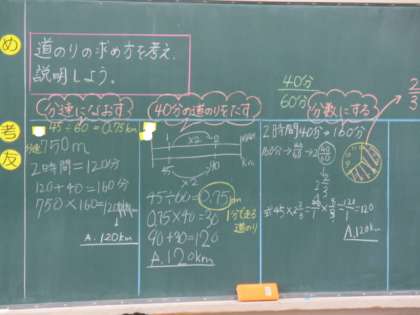 め
道のりの求め方を考え、
説明しよう。
考
友
分速になおす
45÷60=0.75km
分速750m
2時間=120分
120+40=160分
750×160=120
A.120km
40分の道のりをたす
×2
45 90
km
45÷60=0.75km
0.75×40=30
1分で走る
道のり
90+30=120
A.120km
40分
60分
分数にする
2/3
2時間40分→160分
式45×2 2/3=45/1×8/3=120/1=120
A.120km